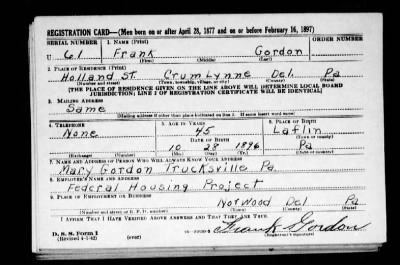 REGISTRATION CARD—(Men born on or after April 28, 1877 and on or before February 16, 1897)
SERIAL NUMBER 1. NAME (Print) ORDER NUMBER
U 61 Frank Gordon
(First) (Middle) (Last)
2. PLACE OF RESIDENCE (Print)
Holland St. Crum Lynne Del. Pa
(Number and street) (Town, township, village, or city) (County) (State)
[THE PLACE OF RESIDENCE GIVEN ON THE LINE ABOVE WILL DETERMINE LOCAL BOARD
JURISDICTION; LINE 2 OF REGISTRATION CERTIFICATE WILL BE IDENTICAL]
3. MAILING ADDRESS
Same
[Mailing address if other than place indicated on line 2. If same insert word same]
4. TELEPHONE 5. AGE IN YEARS 6. PLACE OF BIRTH
None 45 Laflin
DATE OF BIRTH (Town or county)
10 28 1896 Pa
(Exchange) (Number) (Mo.) (Day) (Yr.) (State or country)
7. NAME AND ADDRESS OF PERSON WHO WILL ALWAYS KNOW YOUR ADDRESS
Mary Gordon Trucksville Pa.
8. EMPLOYER'S NAME AND ADDRESS
Federal Housing Project
9. PLACE OF EMPLOYMENT OR BUSINESS
Norwood Del Pa
(Number and street or R. F. D. number) (Town) (County) (State)
I AFFIRM THAT I HAVE VERIFIED ABOVE ANSWERS AND THAT THEY ARE TRUE.
D. S. S. Form 1
(Revised 4-1-42) (over) Frank Gordon
(Registrant's signature)